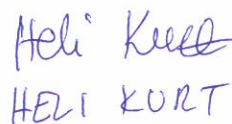 Heli Kurt
HELI KURT